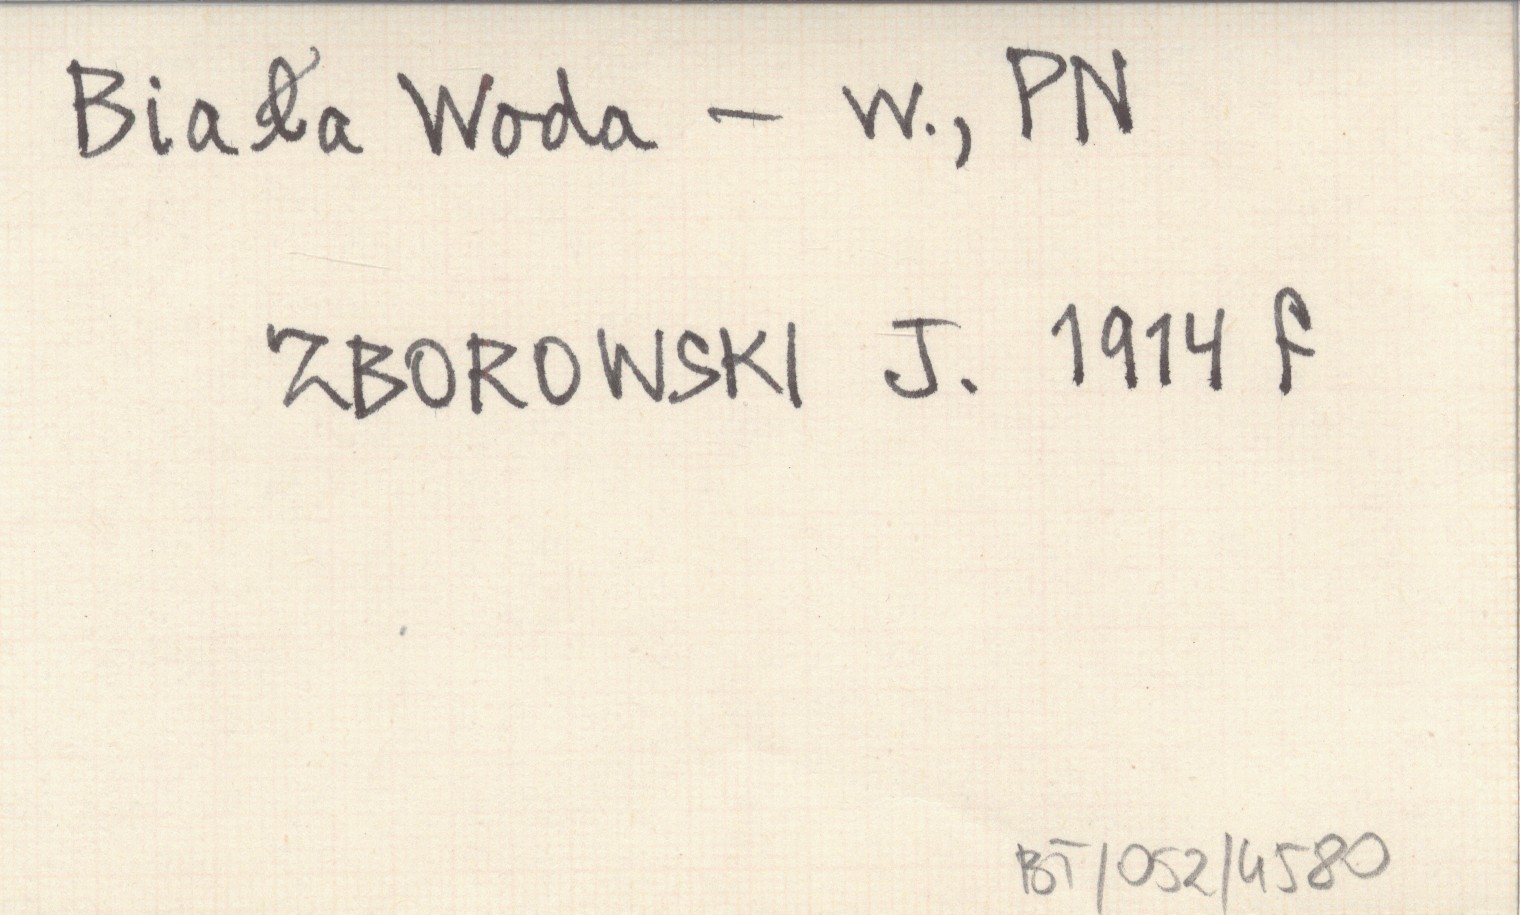 Biała Woda – w., PN
ZBOROWSKI J. 1914 f
BT/052/4580